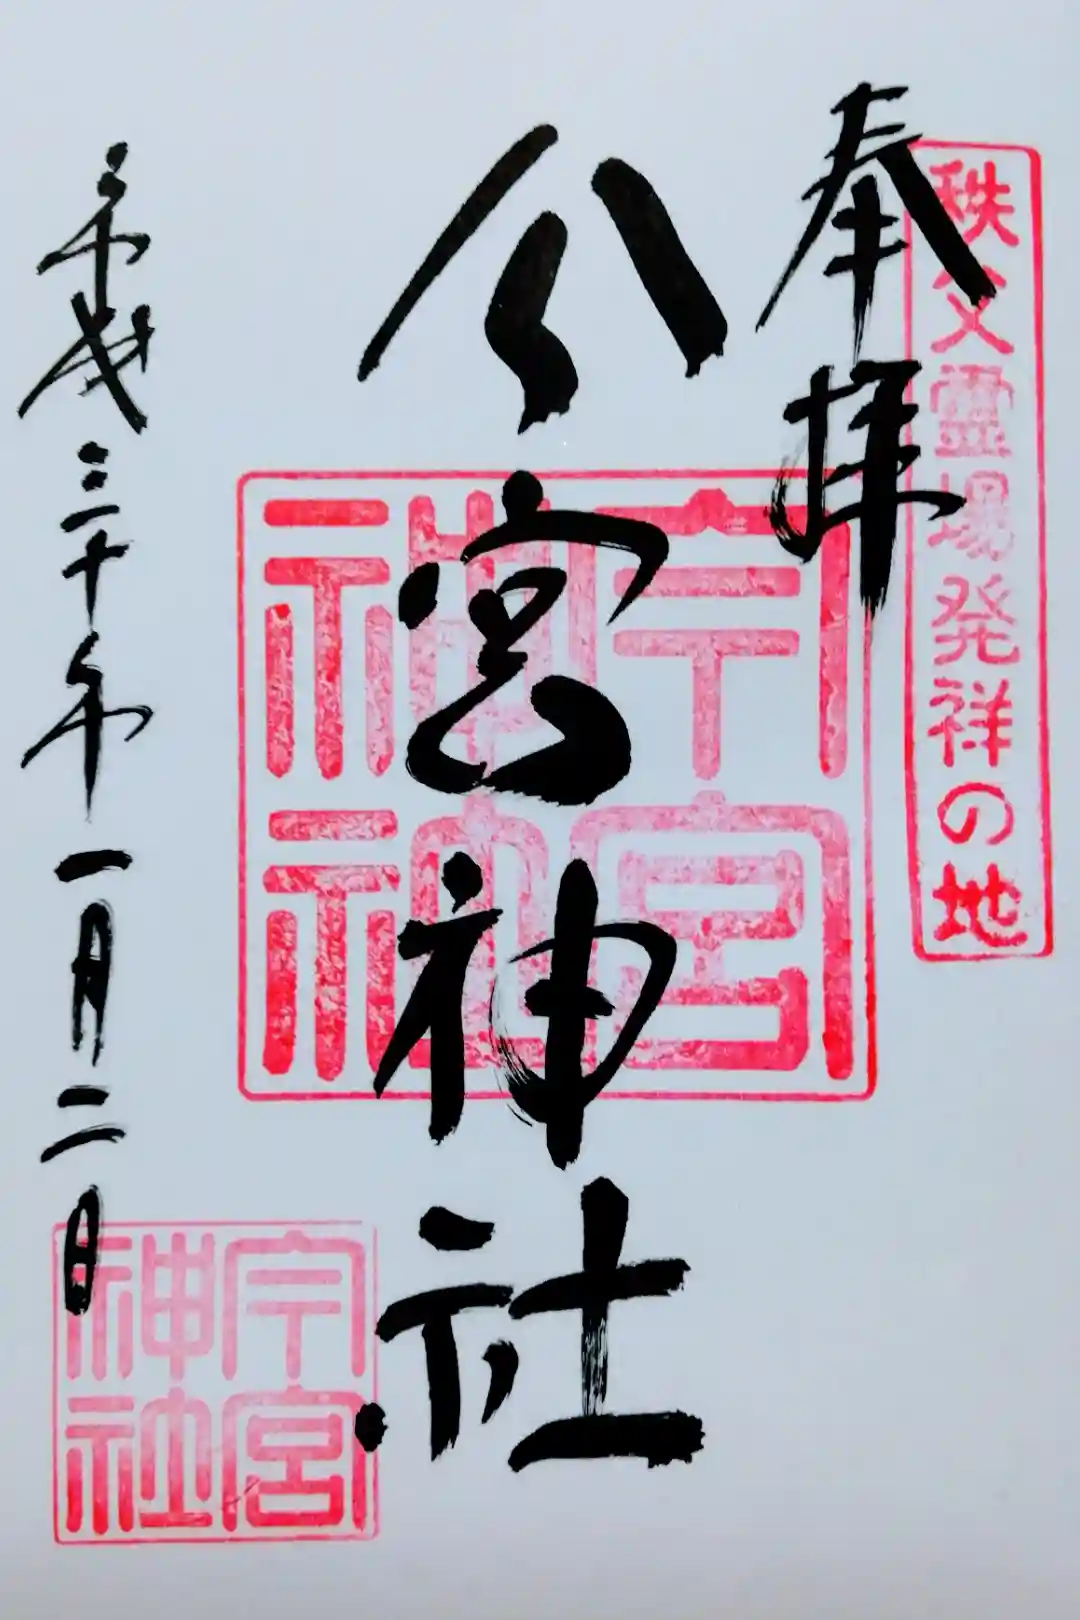 秩父霊場発祥の地
奉拝
今宮神社
今宮神社
平成三十年一月二日
今宮神社